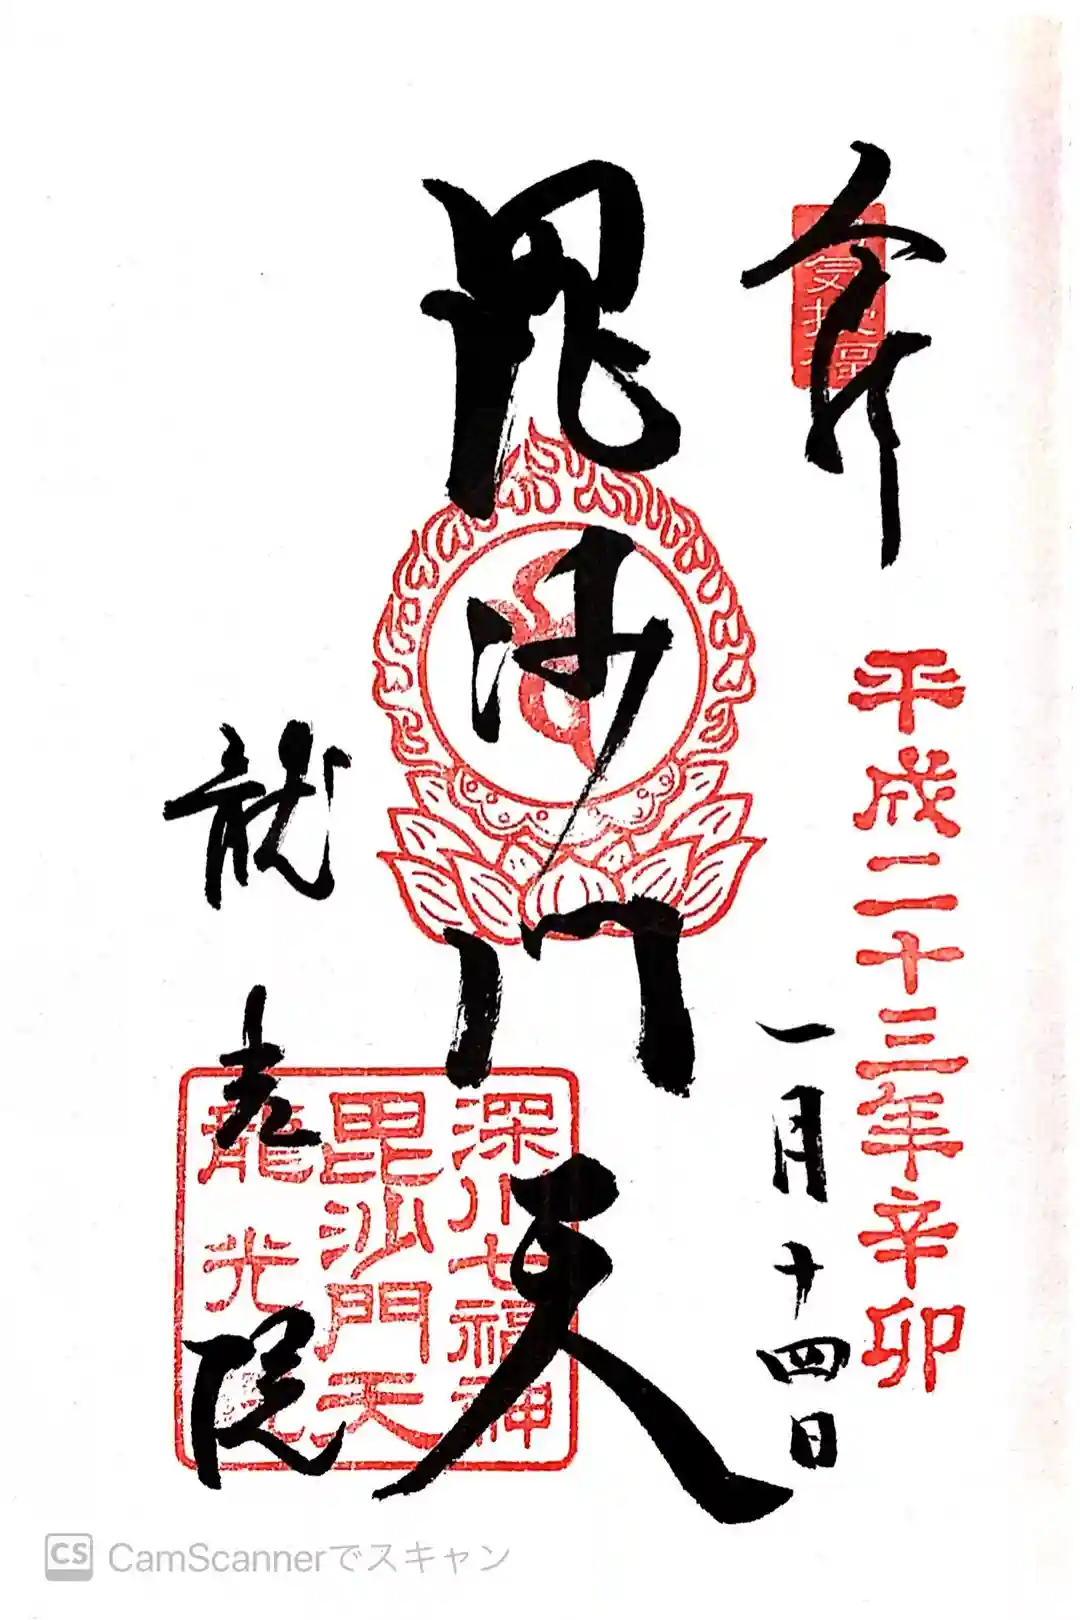 奉拝
平成二十三年辛卯
一月十四日
毘沙門天
龍光院
深川七福神
毘沙門天
龍光院
CS CamScannerでスキャン